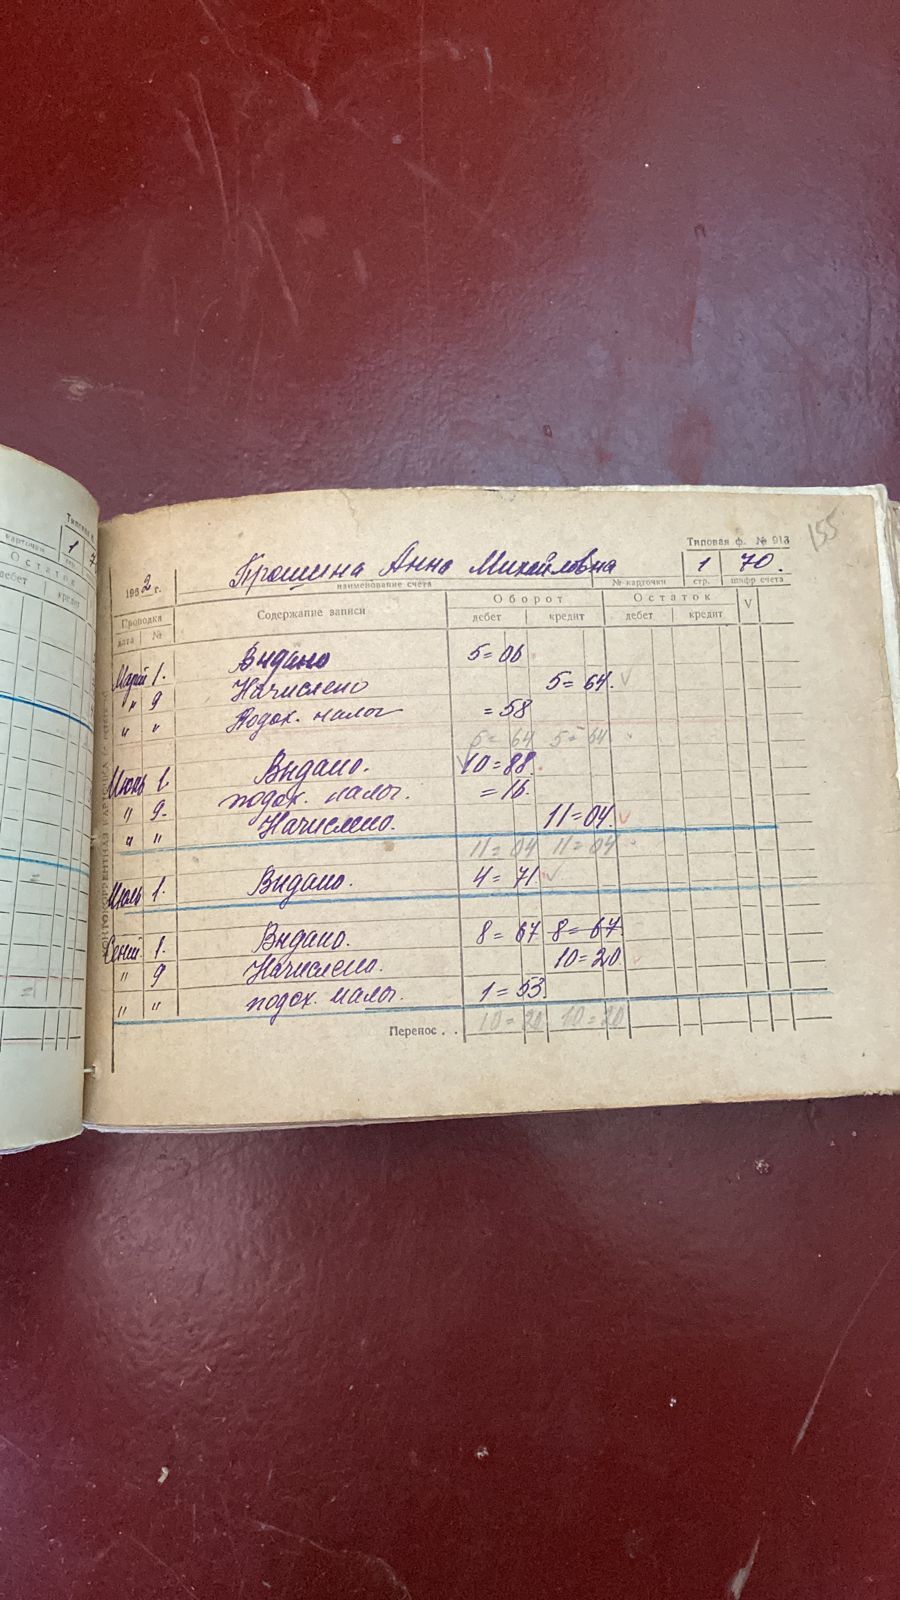 Типовая ф. № 913
155
1962 г. Крошина Анна Михайловна 1 70.
наименование счета № карточки стр. шифр счета
Проводка Содержание записи Оборот Остаток V
дата № дебет кредит дебет кредит
Март 1. Выдано 5=06
" 9 Начислено 5=64.
" " Подох. налог =58
5=64 5=64
Июнь 1. Выдано. 10=88.
" 9. подох. налог. =16.
" " Начислено. 11=04
11=04 11=04
Июль 1. Выдано. 4=71.
Сент. 1. Выдано. 8=67 8=67
" 9 Начислено. 10=20
" " подох. налог. 1=53
Перенос . . 10=20 10=20
Типовая
карточки 1 7
стр.
Остаток
дебет кредит